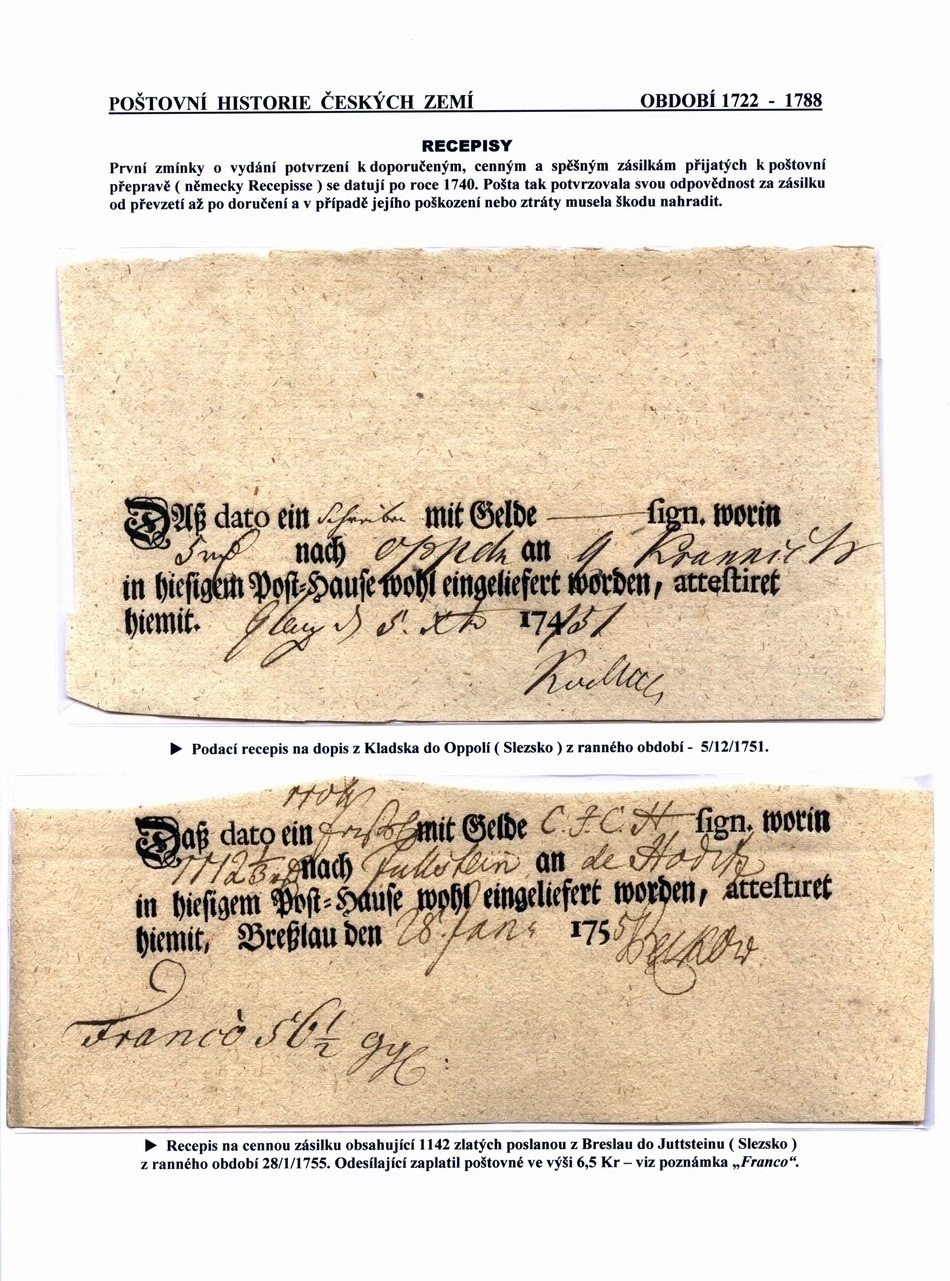 POŠTOVNÍ HISTORIE ČESKÝCH ZEMÍ OBDOBÍ 1722 - 1788
RECEPISY
První zmínky o vydání potvrzení k doporučeným, cenným a spěšným zásilkám přijatých k poštovní
přepravě ( německy Recepisse ) se datují po roce 1740. Pošta tak potvrzovala svou odpovědnost za zásilku
od převzetí až po doručení a v případě jejího poškození nebo ztráty musela škodu nahradit.
Daß dato ein Schreiben mit Gelde sign. worin
nach Oppeln an
in hiesigem Post-Hause wohl eingeliefert worden, attestiret
hiemit. 5. 174/51
▶ Podací recepis na dopis z Kladska do Oppolí ( Slezsko ) z ranného období - 5/12/1751.
Daß dato ein mit Gelde C. F. C. H sign. worin
nach an de Hoditz
in hiesigem Post-Hause wohl eingeliefert worden, attestiret
hiemit, Breßlau den 28. Jan. 1755
Franco 56 1/2
▶ Recepis na cennou zásilku obsahující 1142 zlatých poslanou z Breslau do Juttsteinu ( Slezsko )
z ranného období 28/1/1755. Odesílající zaplatil poštovné ve výši 6,5 Kr – viz poznámka „Franco“.